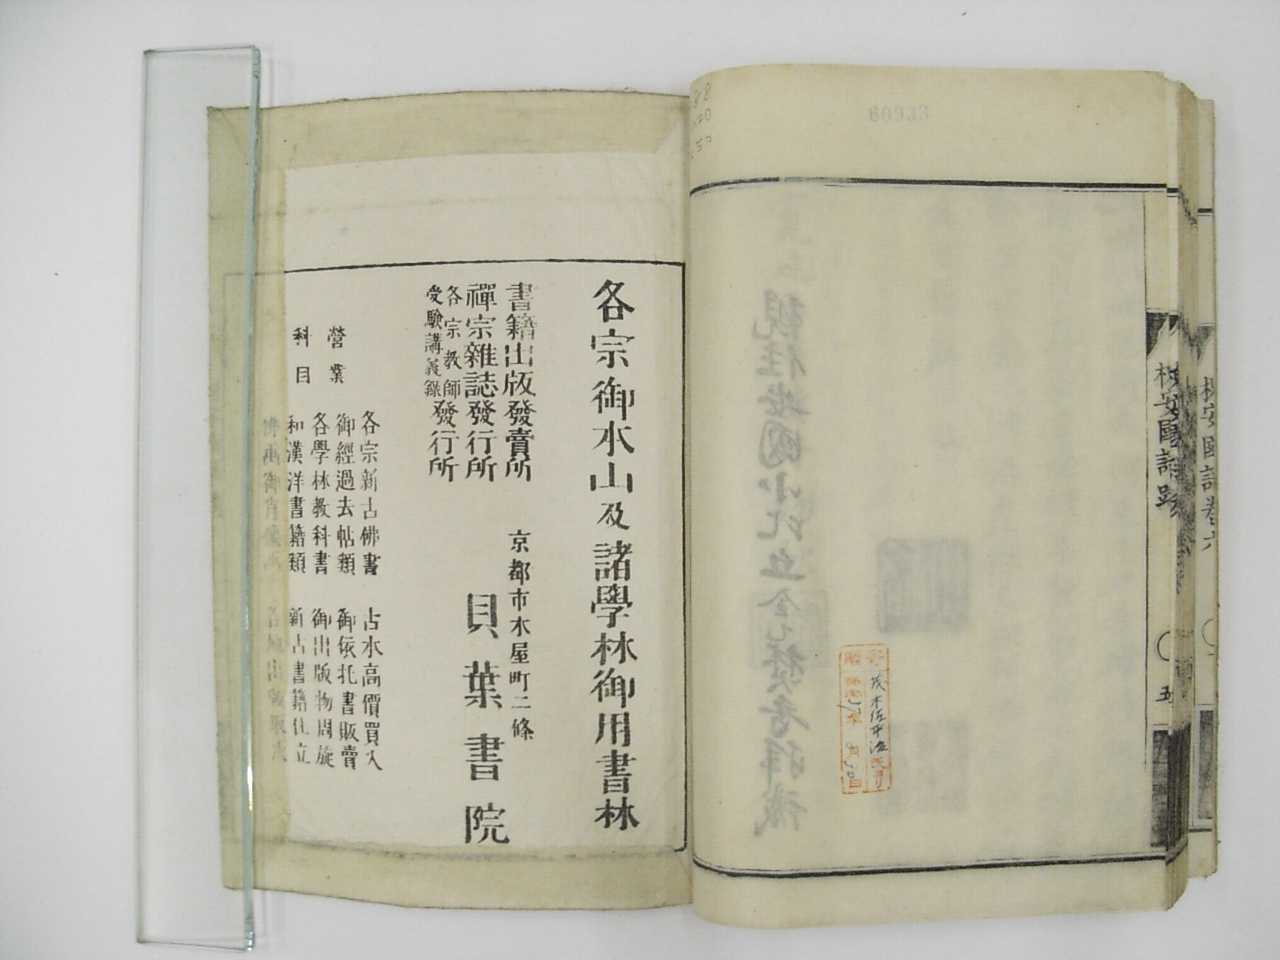 60933
槐安國語卷六
槐安國語跋
五
茂木佐平治氏ヨリ
各宗御本山及諸學林御用書林
書籍出版發賣所
禪宗雜誌發行所
各宗教師受驗講義錄發行所
京都市木屋町二條
貝葉書院
營業科目
各宗新古佛書
古本高價買入
御經過去帖類
御依托書販賣
各學林教科書
御出版物周旋
和漢洋書籍類
新古書籍仕立